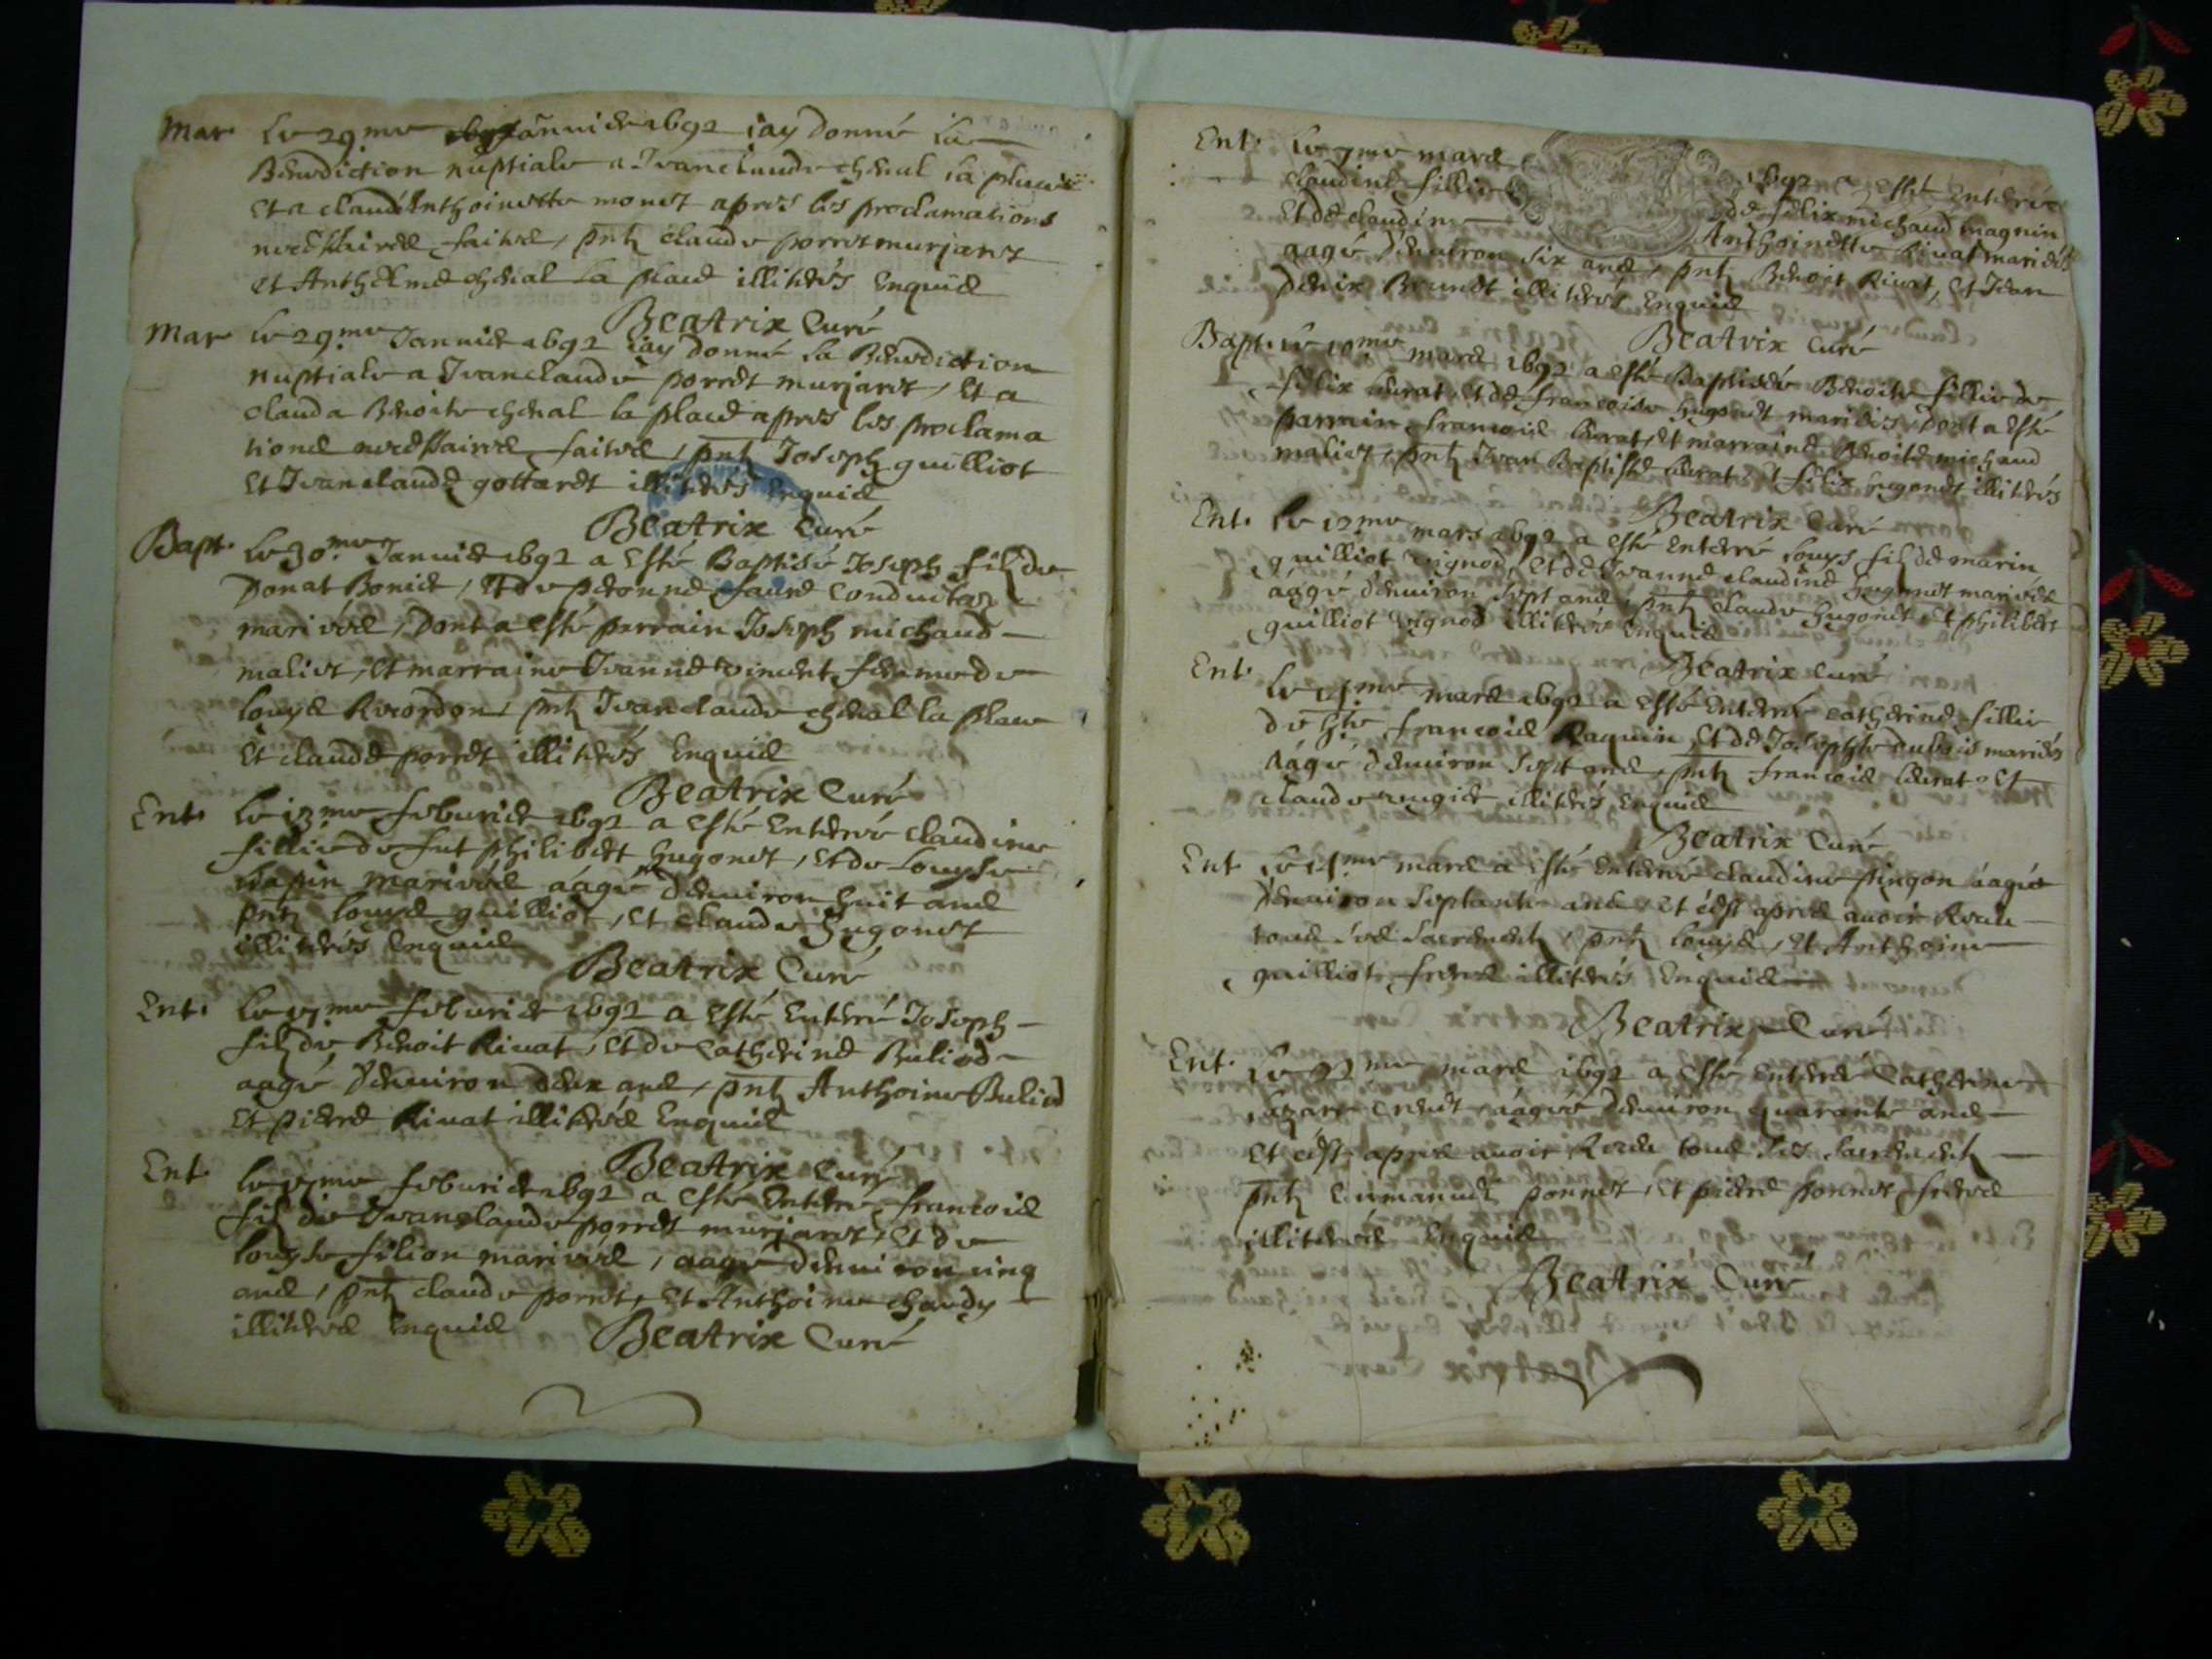 Mar Le 29.me Januier 1692 iay donné la
Benediction nuptiale a Jvanclaude cheual la place
Et a claudé Anthoinette monet apres les proclamations
necessaires faites, pntz claude porret murjanet
et Anthelme cheual la place illiteres Enquis
Beatrix Curé
Mar Le 29.me Januier 1692 iay donné la Benediction
nuptiale a Jvanclaude porret murjanet, Et a
clauda Benoite cheual la place apres les proclama
tions necessaires faites, pntz Joseph guilliot
Et Jvanclaude gottaret illiteres Enquis
Beatrix Curé
Bapt. Le 30.me Januier 1692 a Esté Baptisé Joseph filz de
Donat Bonier, Et de peronne faure
mariées, Dont a esté parrain Joseph michaud
maliet, Et marraine Jvanne vincent femme de
louys Reordon, pntz Jvanclaude cheual la place
Et claude porret illiteres Enquis
Beatrix Curé
Ent. Le 13.me feburier 1692 a Esté Enterré claudine
fillie de fut philibert hugonet, et de louyse
mariées aágée Denuiron huit ans
pntz louys guilliot, Et claude hugonet
illiteres Enquis
Beatrix Curé
Ent. Le 17.me feburier 1692 a Esté Enterré Joseph
filz de Benoit Riuat, Et de catherine Buliod
aagé Denuiron deux ans, pntz Anthoine Buliod
Et pierre Riuat illiteres Enquis
Beatrix Curé
Ent. Le 17.me feburier 1692 a Esté Enterré francois
filz de Jvanclaude porret murjanet, Et de
louyse filion mariées, aagé Denuiron cinq
ans, pntz claude porret, Et Anthoine chardy
illiteres Enquis
Beatrix Curé
Ent. Le 7.me mars 1692 a Esté Enterrée
claudine fillie de felix michaud magnin
Et de claudine Anthoinette Riuat mariés
aagé Denuiron six ans, pntz Benoit Riuat, Et Jean
Denix Brunet illiteres Enquis
Beatrix Curé
Bapt. Le 10.me mars 1692 a esté Baptisée Benoite fillie de
felix Curat, et de francoise hugonet mariés, Dont a Esté
parrain francois Curat, Et marraine Benoite michaud
maliet, pntz Jvan Baptiste Curat Et felix hugonet illiteres
Beatrix Curé
Ent. Le 12.me mars 1692 a esté Enterré louys filz de marin
guilliot Et de Jvanne claudine hugonet mariés
aágé Denuiron sept ans, pntz claude hugonet Et philibert
guilliot illiteres Enquis
Beatrix Curé
Ent. Le mars 1692 a Esté Enterré catherine fillie
de francois Raquin, Et de Josephte dubois mariés
aágé Denuiron sept ans, pntz francois Curat Et
claude illiteres Enquis
Beatrix Curé
Ent Le mars a Esté Enterré claudine pingon aagée
Denuiron septante ans, Et cest apres auoir Receu
tous ses sacrements, pntz louys, Et Anthoine
guilliot freres illiteres Enquis
Beatrix Curé
Ent. Le 22.me mars 1692 a esté Enterré Catherine
aágée Denuiron quarante ans
Et cest apres auoir Receu tous ses sacrements
pntz Eumanuel ponnet, Et pierre ponnet freres
illiteres Enquis
Beatrix Curé